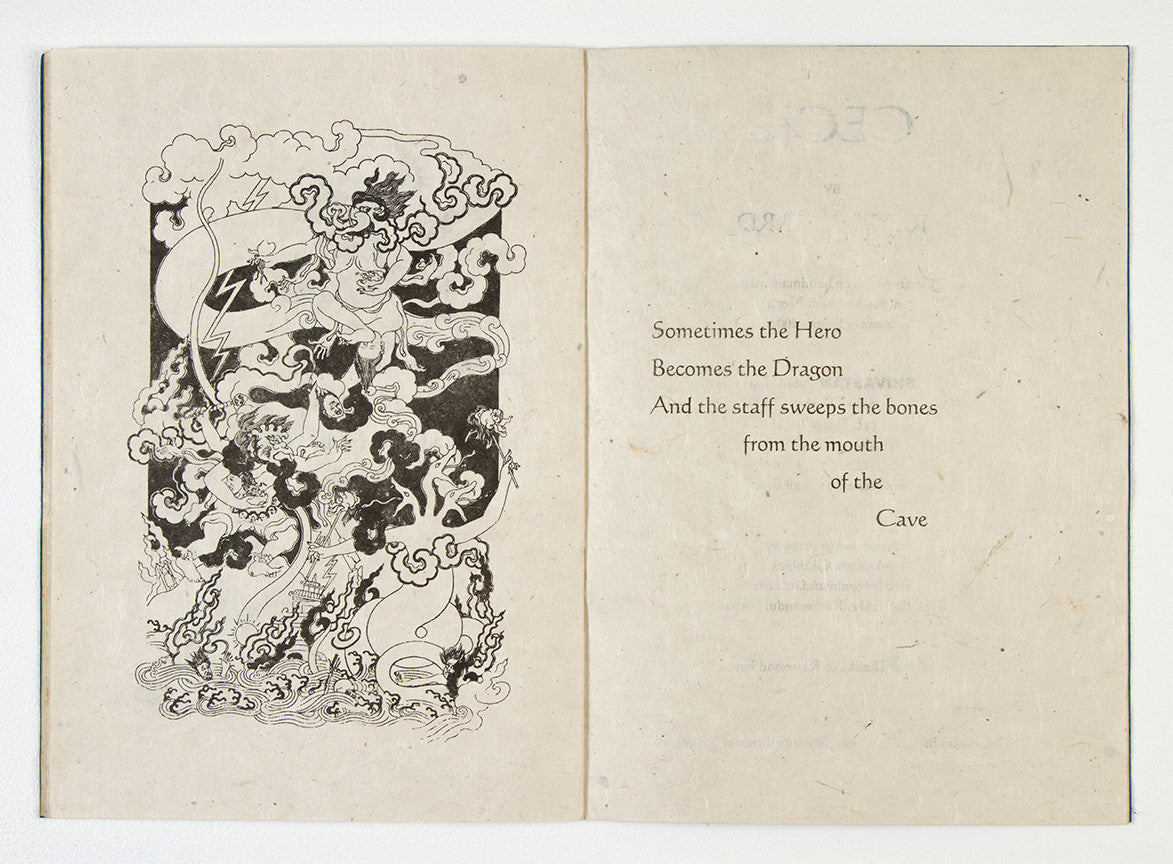 Sometimes the Hero
Becomes the Dragon
And the staff sweeps the bones
from the mouth
of the
Cave